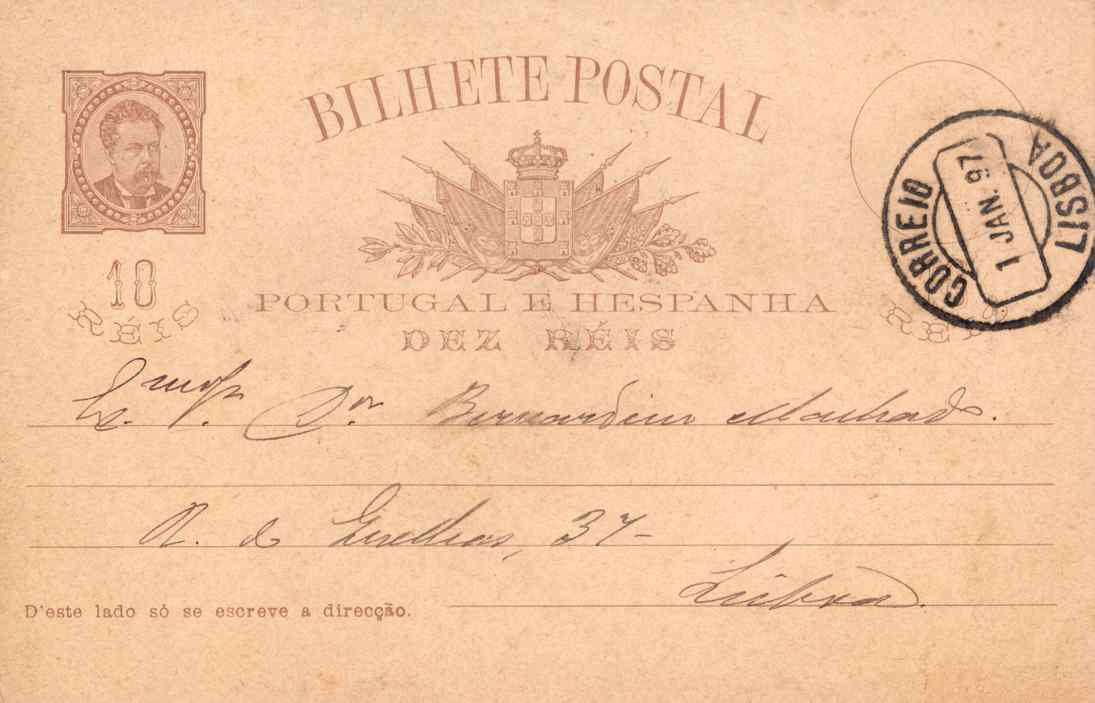 BILHETE POSTAL
10
RÉIS
PORTUGAL E HESPANHA
DEZ RÉIS
CORREIO
1 JAN. 97
LISBOA
RÉIS
Ex.mo Sr. Dor Bernardino Machado.
R. de 37-
Lisboa.
D'este lado só se escreve a direcção.